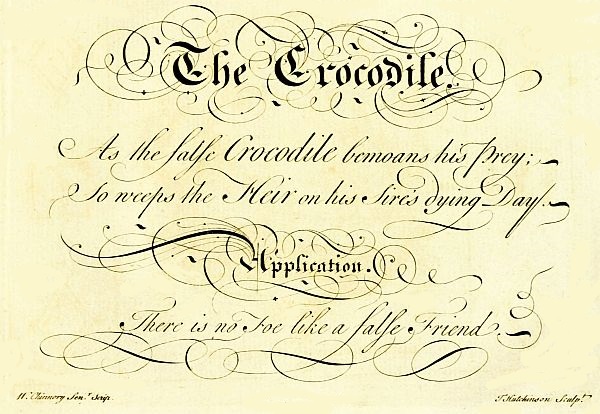 The Crocodile.
As the false Crocodile bemoans his Prey;
So weeps the Heir on his Sire's dying Day.
Application.
There is no Foe like a false Friend.
W. Chinnery Senr. Scrip. T. Hutchinson Sculpt.